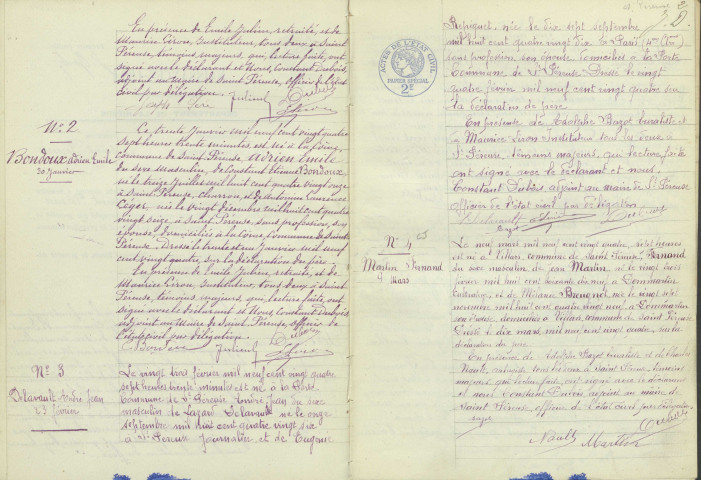 En présence de Emile Julien, retraité, et de
Maurice Léron, Instituteur, tous deux à Saint
Péreuse, témoins majeurs, qui, lecture faite, ont
signé avec le déclarant et Nous, Constant Dubois,
adjoint au maire de Saint Péreuse, officier de l'état
civil par délégation.
Julien Dubois
Léron
N° 2
Bondoux Adrien Emile
30 Janvier
Ce trente Janvier mil neuf cent vingt quatre
sept heures trente minutes est né à la Côme,
Commune de Saint-Péreuse, Adrien Emile
du sexe masculin, de Constant Bondoux
né le treize Juillet mil huit cent quatre vingt onze
à Saint-Péreuse, charron, et de
née le vingt décembre mil huit cent quatre
vingt seize à Saint-Péreuse, sans profession, son
épouse, domiciliés à la Côme, commune de Saint-
Péreuse. Dressé le trente et un Janvier mil neuf
cent vingt quatre, sur la déclaration du père.
En présence de Emile Julien, retraité, et de
Maurice Léron, Instituteur, tous deux à Saint-
Péreuse, témoins majeurs, qui, lecture faite, ont
signé avec le déclarant et Nous Constant Dubois
adjoint au Maire de Saint Péreuse, officier de
l'état civil par délégation.
Bondoux Julien Dubois
Léron
N° 3
Delavault André Jean
23 février
Le vingt trois février mil neuf cent vingt quatre
sept heures trente minutes est né à la Porte
Commune de St Péreuse, André Jean du sexe
masculin de Lazare Delavault né le onze
septembre mil huit cent quatre vingt six
à St Péreuse Journalier et de Eugénie
née le dix sept septembre
mil huit cent quatre vingt dix à Paris
sans profession, son épouse domiciliés à la Porte
Commune de St Péreuse. Dressé le vingt
quatre février mil neuf cent vingt quatre sur
la déclaration du père
ACTES DE L'ÉTAT CIVIL
PAPIER SPÉCIAL
2F
En présence de Adolphe Bazot buraliste et
de Maurice Léron Instituteur tous les deux à
St Péreuse, témoins majeurs, qui lecture faite
ont signé avec le déclarant et nous,
Constant Dubois adjoint au maire de St Péreuse
officier de l'état civil par délégation
Delavault Léron Dubois
Bazot
N° 4
Martin Fernand
9 Mars
Le neuf mars mil neuf cent vingt quatre, sept heures
est né à commune de Saint Péreuse, Fernand
du sexe masculin de Jean Martin né le vingt trois
mil huit cent à Dommartin
et de née le vingt sept
novembre mil huit cent quatre vingt à Dommartin
son épouse, domiciliés à commune de Saint Péreuse
Dressé le dix mars mil neuf cent vingt quatre, sur la
déclaration du père
En présence de Adolphe Bazot buraliste et de Charles
Nault, tous les deux à Saint Péreuse, témoins
majeurs, qui lecture faite, ont signé avec le déclarant
et nous Constant Dubois adjoint au maire de
Saint Péreuse, officier de l'état civil par délégation
Bazot Dubois
Nault Martin